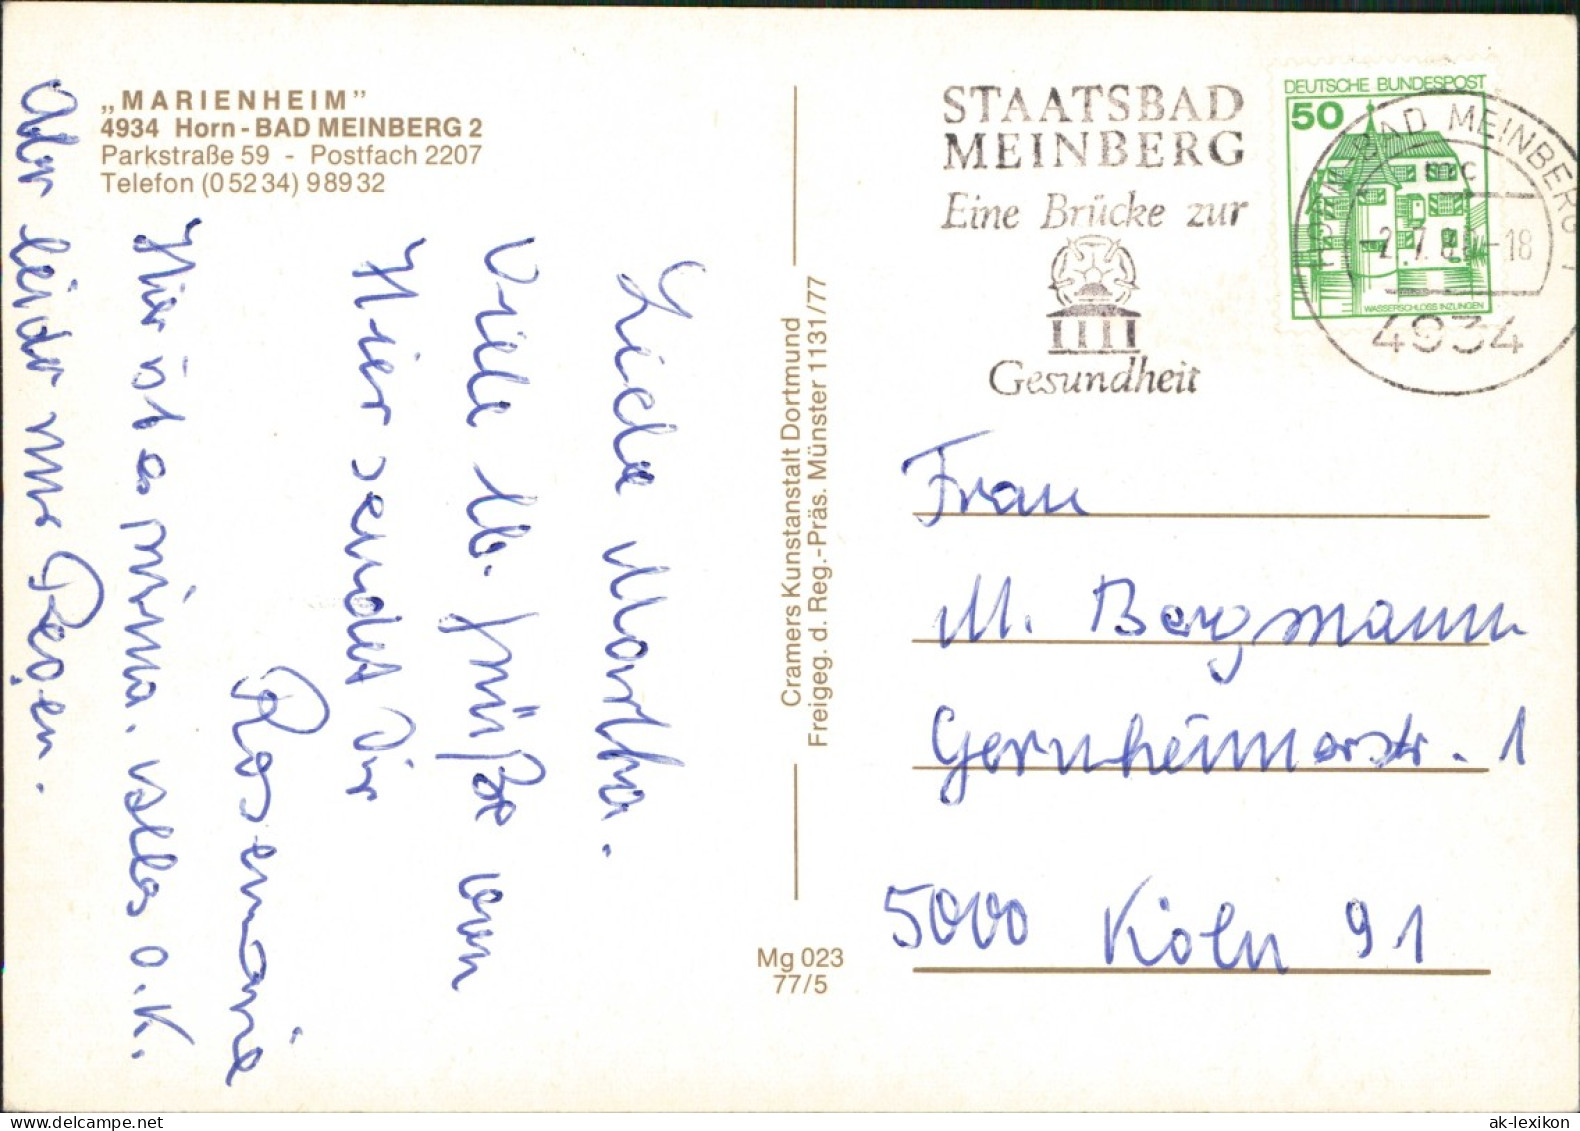 „MARIENHEIM”
4934 Horn - BAD MEINBERG 2
Parkstraße 59 - Postfach 2207
Telefon (0 52 34) 9 89 32
Liebe Martha.
Viele lb. Grüße von
Hier sendet Dir
Rosemarie
Hier ist es prima. Alles o.K.
Aber leider nur Regen.
Cramers Kunstanstalt Dortmund
Freigeg. d. Reg.-Präs. Münster 1131/77
Mg 023
77/5
STAATSBAD
MEINBERG
Eine Brücke zur
Gesundheit
DEUTSCHE BUNDESPOST
50
WASSERSCHLOSS INZLINGEN
HORN-BAD MEINBERG 1
mc
-2.7.8 -18
4934
Frau
M. Bergmann
Gernheimerstr. 1
5000 Köln 91
ak-lexikon